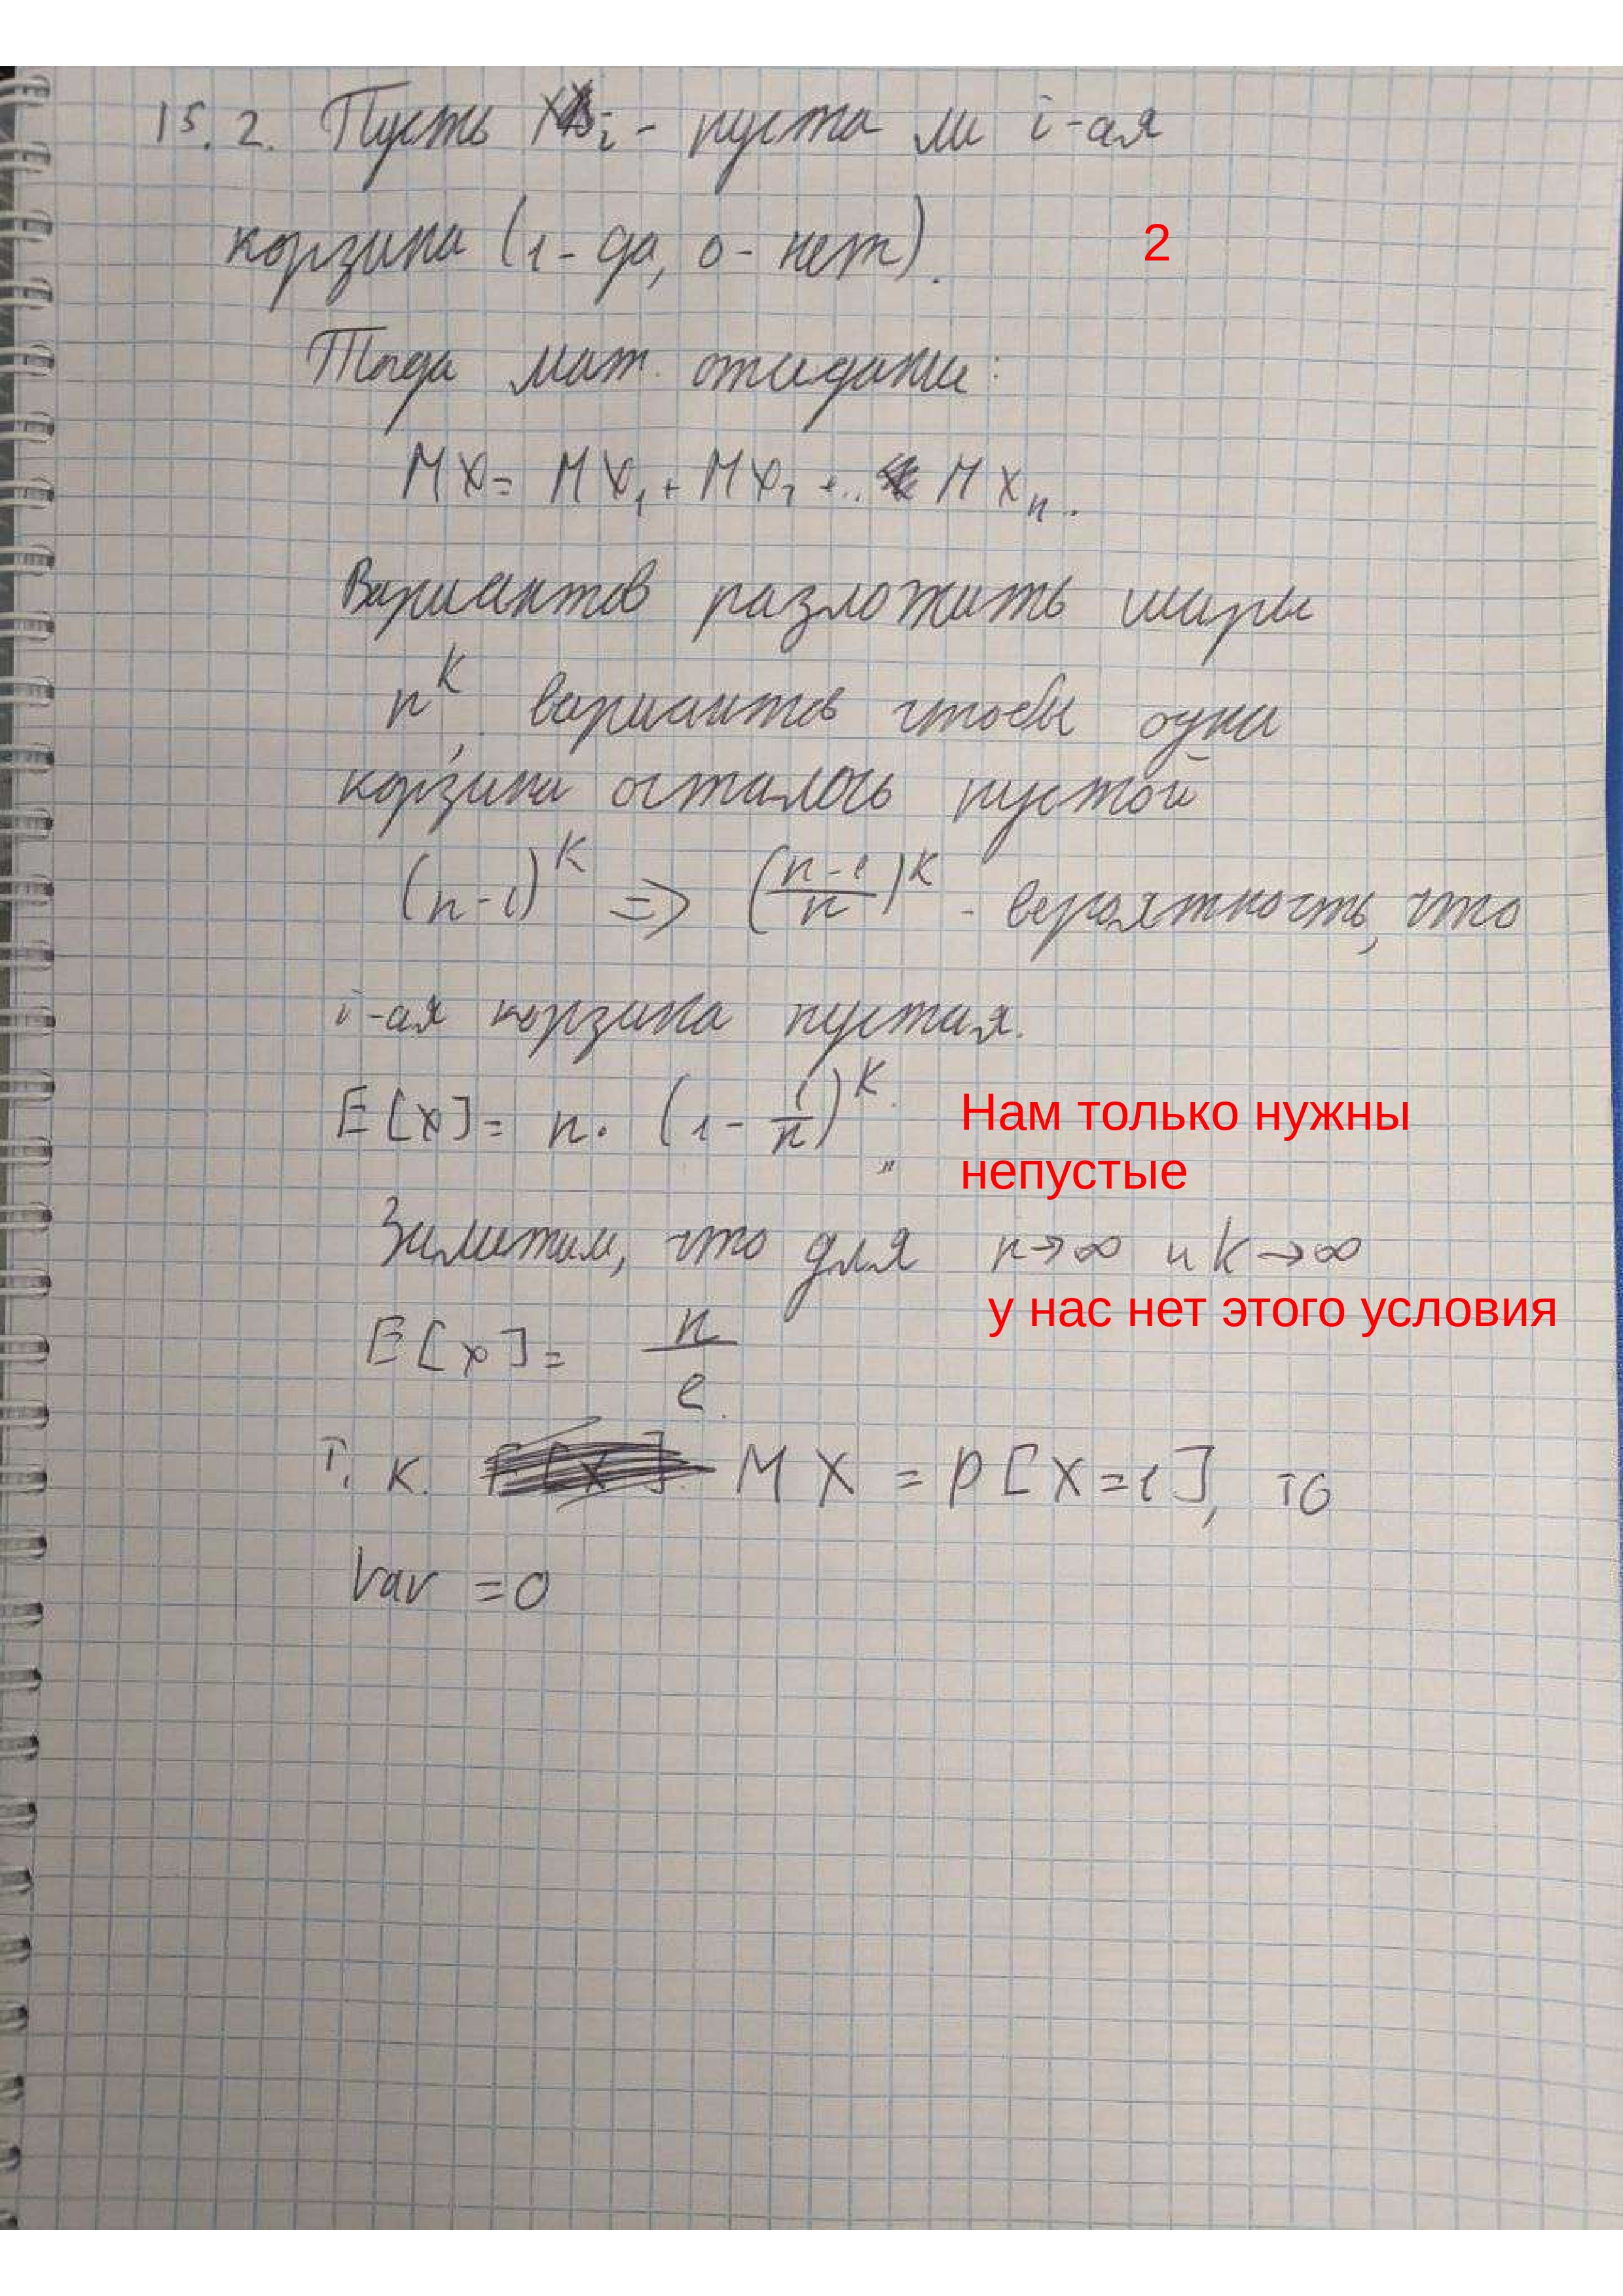 15.2. Пусть Xi - пуста ли i-ая
корзина (1- да, 0- нет).
2
Тогда мат. ожидание:
MX = MX₁ + MX₂ + .. MXn.
Вариантов разложить шары
n^k, вариантов чтобы одна
корзина осталось пустой
(n-1)^k => ((n-1)/n)^k - вероятность, что
i-ая корзина пустая.
E[X] = n · (1 - 1/n)^k.
Нам только нужны
непустые
Заметим, что для n→∞ и k→∞
у нас нет этого условия
E[X] = n/e.
Т. к. MX = P[X=1], то
Var = 0